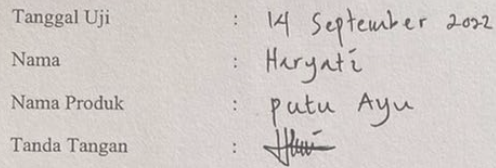 Tanggal Uji : 14 September 2022
Nama : Haryati
Nama Produk : putu Ayu
Tanda Tangan :